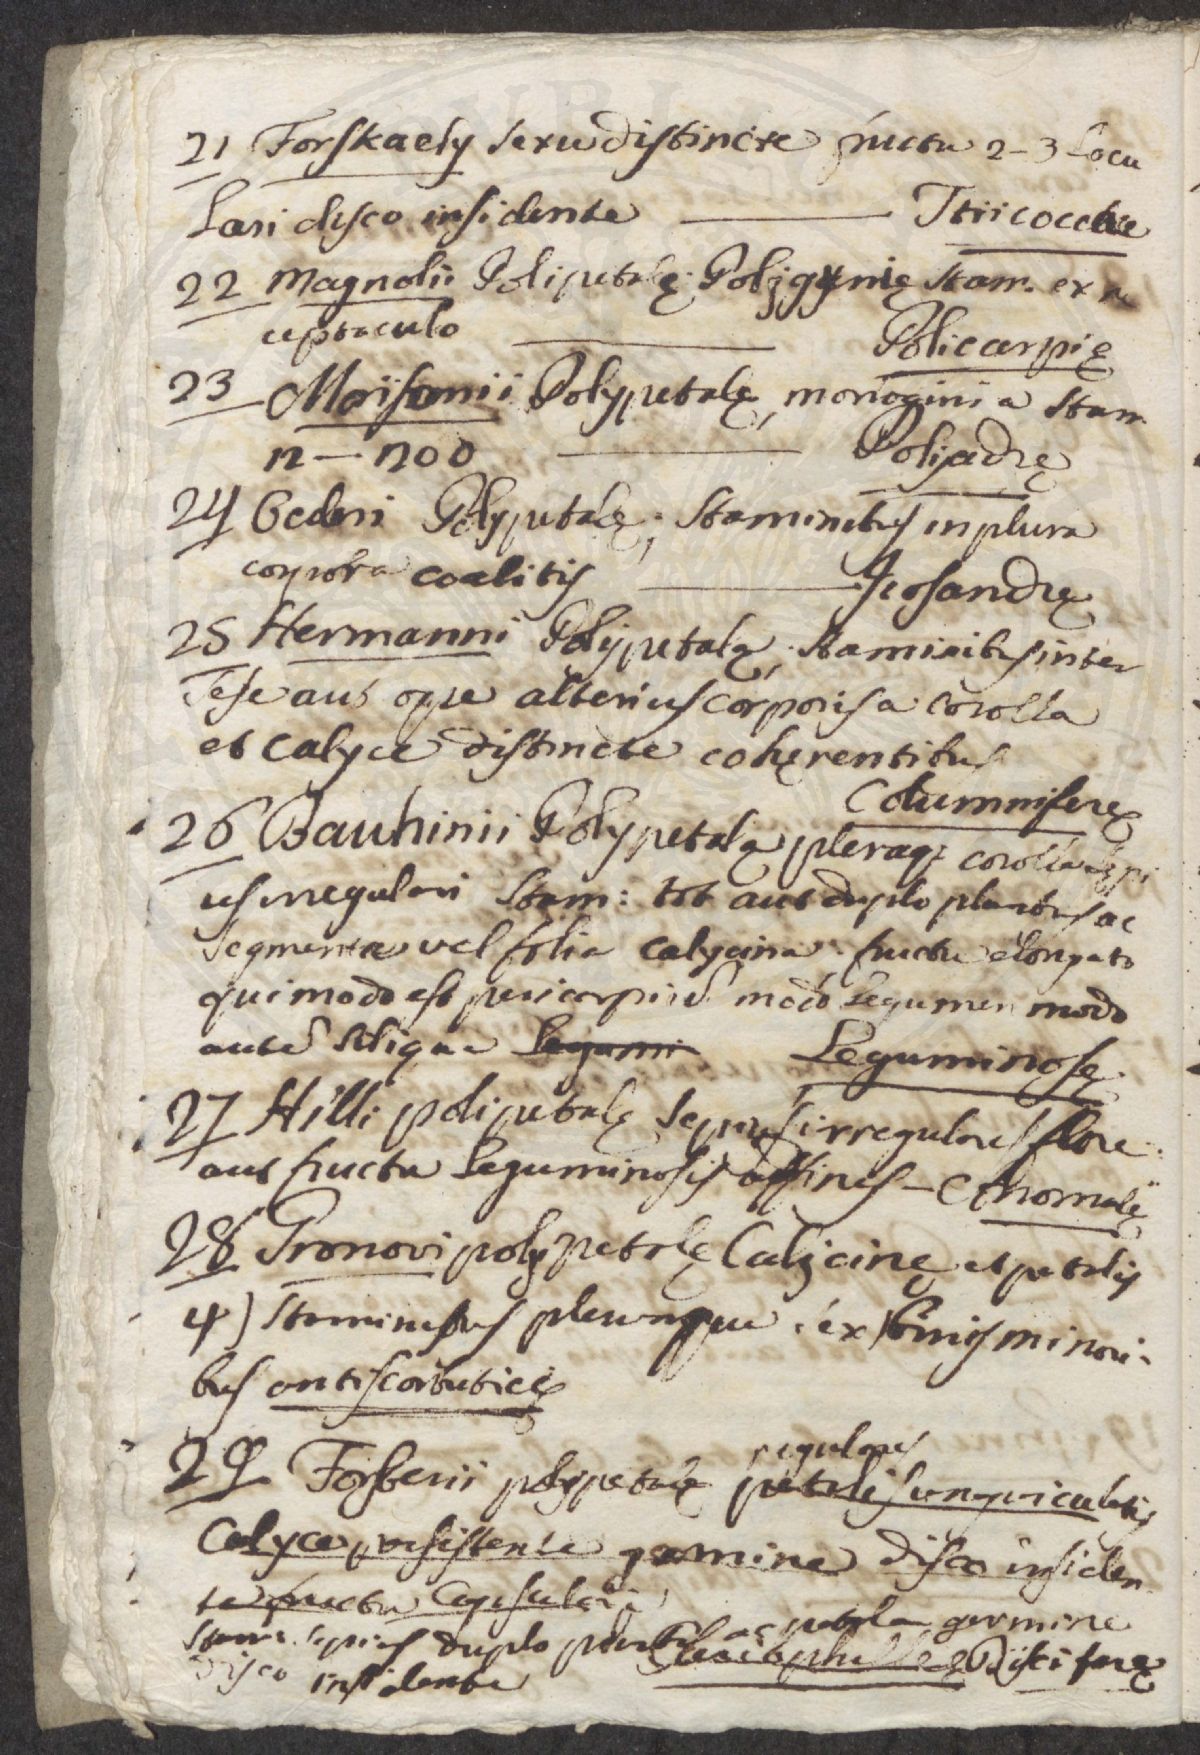 21 Forskaely sexu distincte fructu 2-3 Locu
Lari disco insidente — Triicoccae
22 Magnolii Polipetalę Polygynię stam. ex re
ceptaculo — Policarpię
23 Morisonii Polypetalę, monoginia stam.
n — noo — Poliadrę
24 Oederi Polypetalę, staminibus in plura
corpora coalitis — Icosandrę
25 Hermanni Polypetalę, staminibus inter
sese aut ope alterius corporis a corolla
et calyce distincte cohęrentibus
Columniferę
26 Bauhinii Polypetalę pleraq; corolla sępi
us irregulari Stam: tot aut duplo plaribus ac
segmenta vel folia calycina fructu elongato
qui modo est pericarpiū modo legumen modo
autē siliqua Legumi Leguminosę
27 Hilli polipetalę sepius irregulares flore
aut fructu Leguminosis affines - Anomalę
28 Gronovi polypetalę Calycinę et petalis
4) staminibus plerumque ex his minori-
bus antiscorbuticę
29 Forsterii polypetalę regulares petalis unguiculatis
Calyce persistente germine disco insiden
te fructu Capsulari
stam. sepius duplo ac petala germine
disco insidente Disciferę